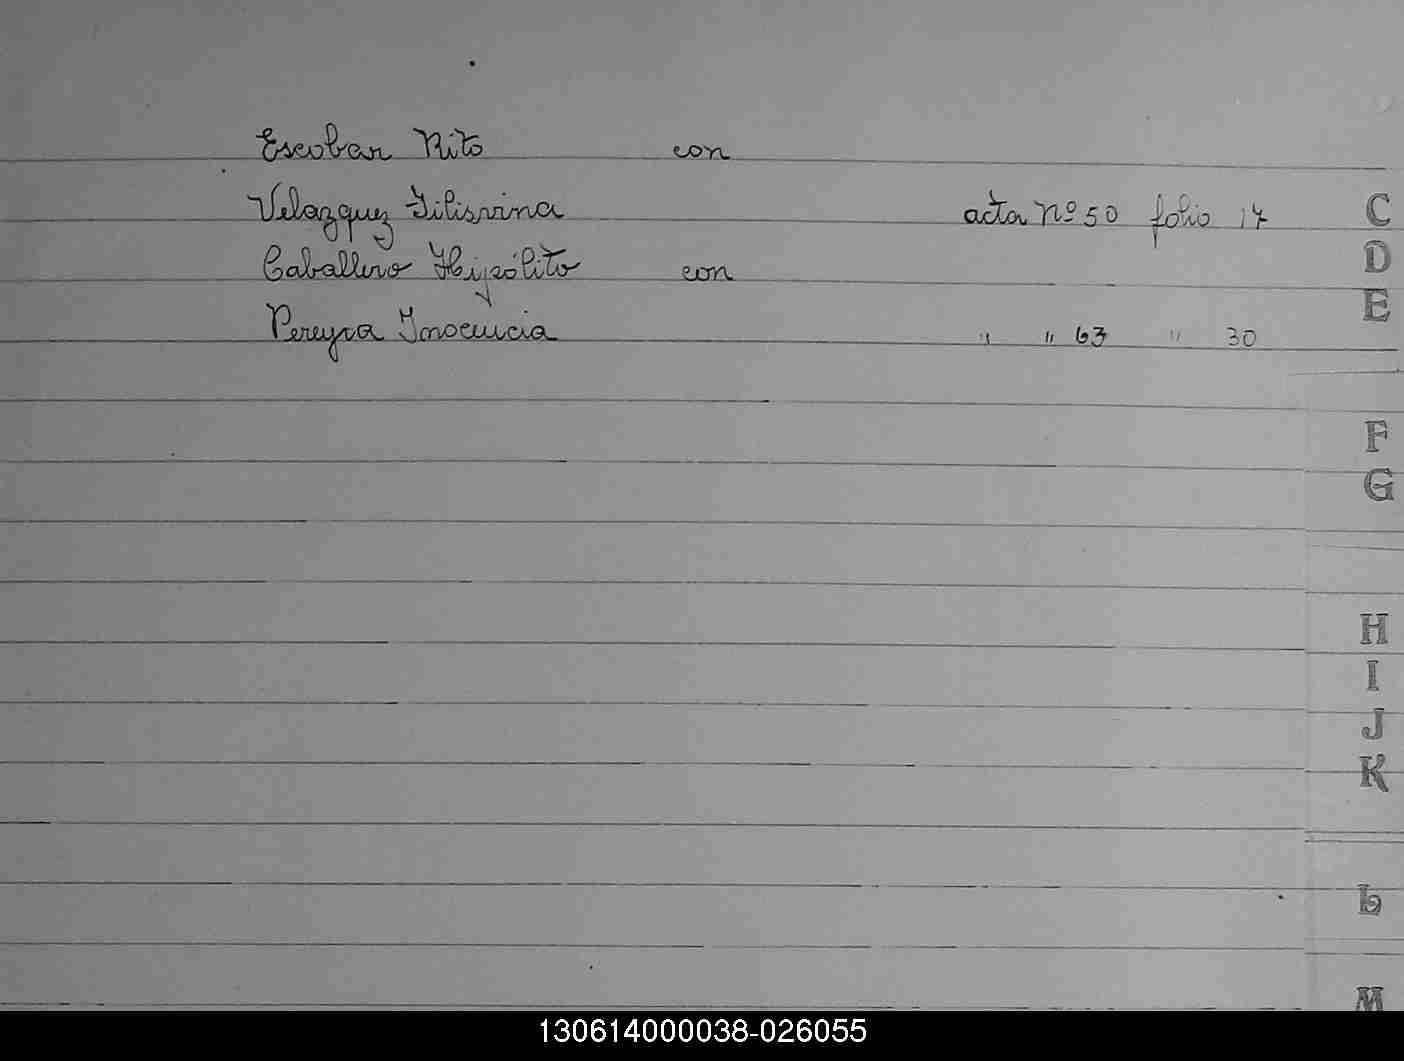 Escobar Rito con
Velazquez acta Nº 50 folio 17
Caballero Hipólito con
Pereyra Inocencia " " 63 " 30
C
D
E
F
G
H
I
J
K
L
M
130614000038-026055